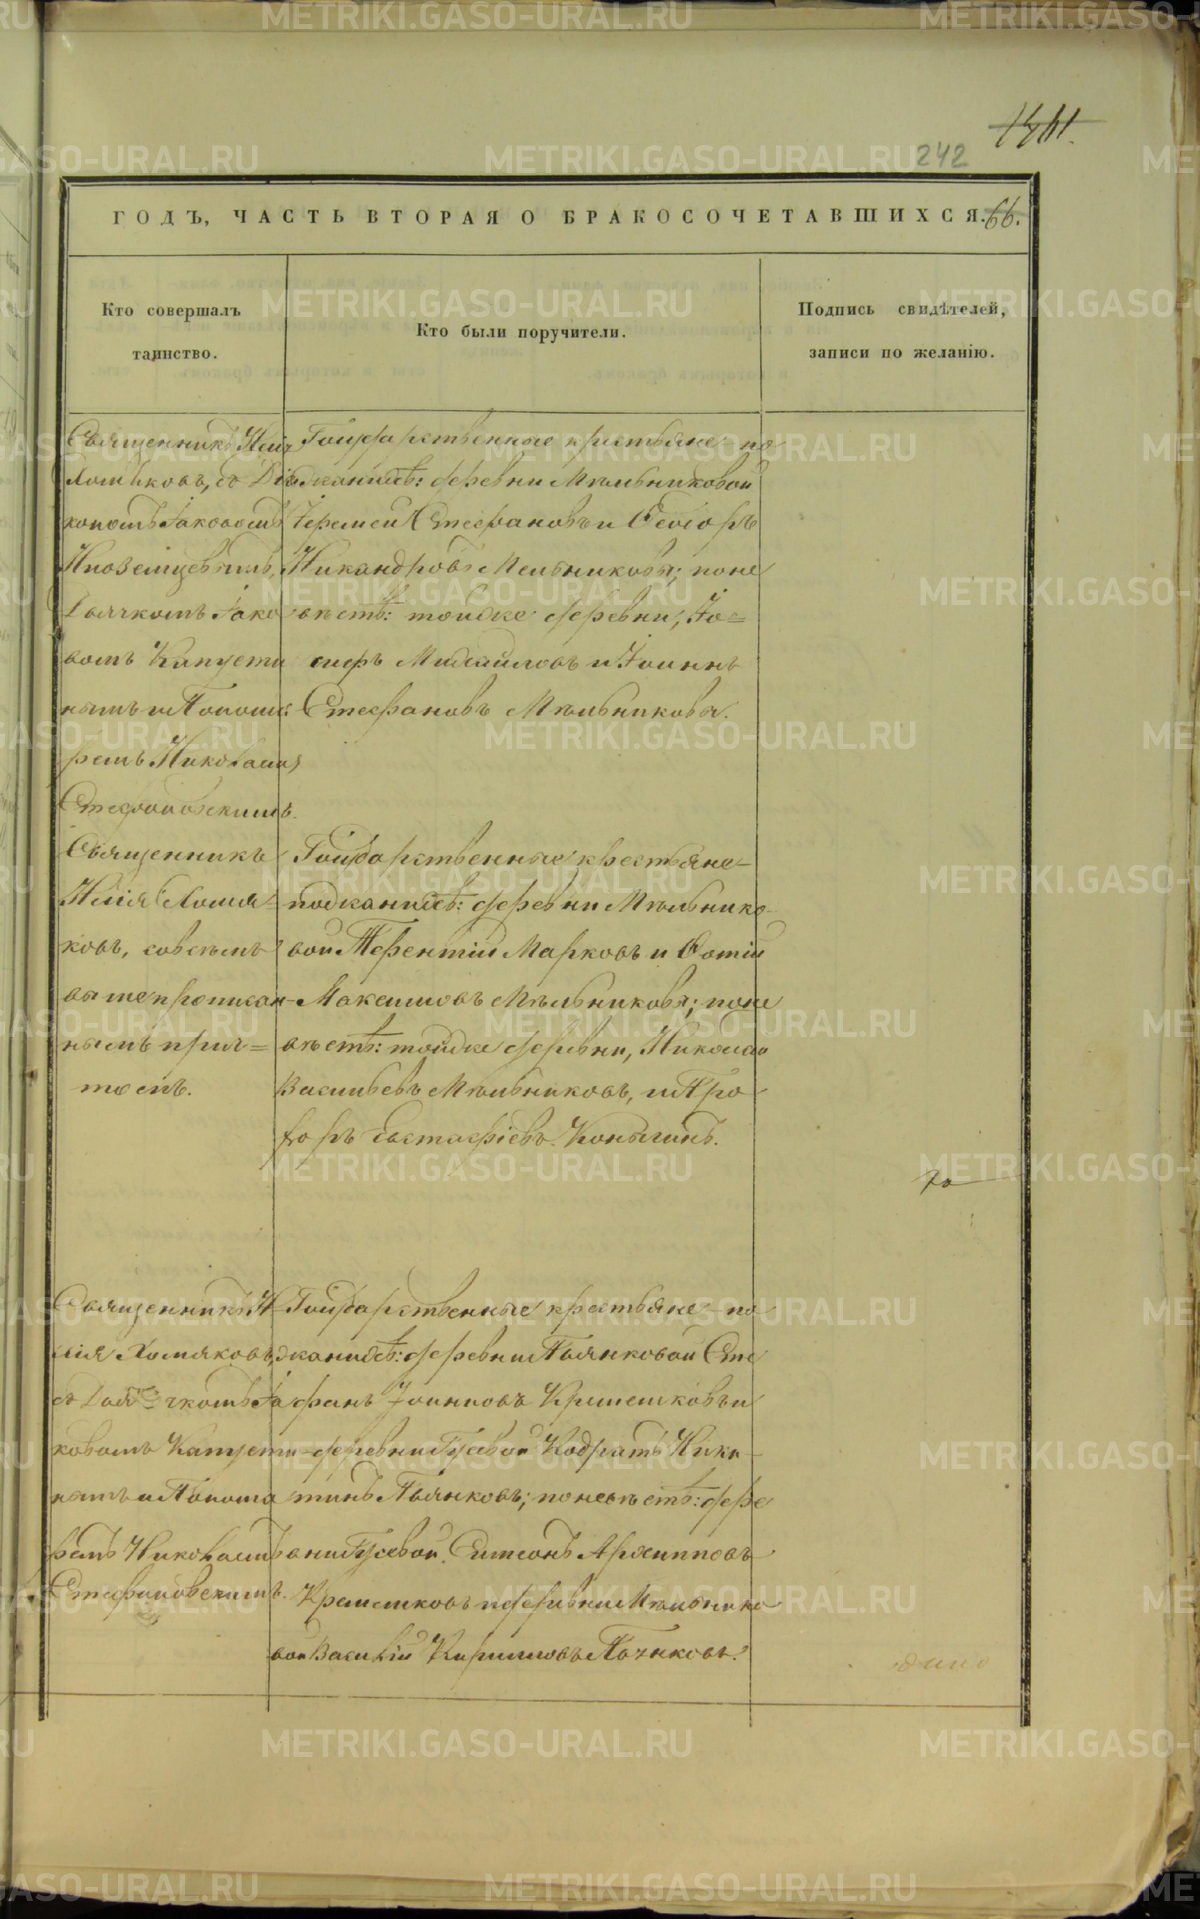 242
ГОДЪ, ЧАСТЬ ВТОРАЯ О БРАКОСОЧЕТАВШИХСЯ. 66.
Кто совершалъ
таинство.
Кто были поручители.
Подпись свидѣтелей,
записи по желанію.
Священникъ Илія
Хомяковъ, съ Діа
кономъ Іаковомъ
Иноземцевымъ,
Дьячкомъ Іако
вомъ Капусти
нымъ и Понома
ремъ Николаемъ
Стефановскимъ.
Государственные крестьяне по
женихѣ: деревни Мѣльниковой
Іеремей Стефановъ и Ѳеодоръ
Никандровъ Мельниковы; поне
вѣстѣ: тойже деревни, Іо=
сифъ Михайловъ и Іоаннъ
Стефановъ Мѣльниковы.
Священникъ
Илія Хомя
ковъ, совсѣмъ
вышепрописан
нымъ прич=
томъ.
Государственные крестьяне
по женихѣ: деревни Мѣльнико
вой Терентій Марковъ и Фотій
Максимовъ Мѣльниковы; поне
вѣстѣ: тойже деревни, Николай
Васильевъ Мѣльниковъ, и Про
хоръ Евстафіевъ Копыгинъ.
Священникъ И
лія Хомяковъ,
съ Дьячкомъ Іа
ковомъ Капусти
нымъ и Понома
ремъ Николаемъ
Стефановскимъ.
Государственные крестьяне по
женихѣ: деревни Пьянковой Сте
фанъ Іоанновъ Крашешковъ и
деревни Гусевой Кодратъ Ники
тинъ Пьянковъ; поневѣстѣ: дере
вни Гусевой Симеонъ Архипповъ
деревни Мѣльнико
вой Василій Кириловъ
METRIKI.GASO-URAL.RU